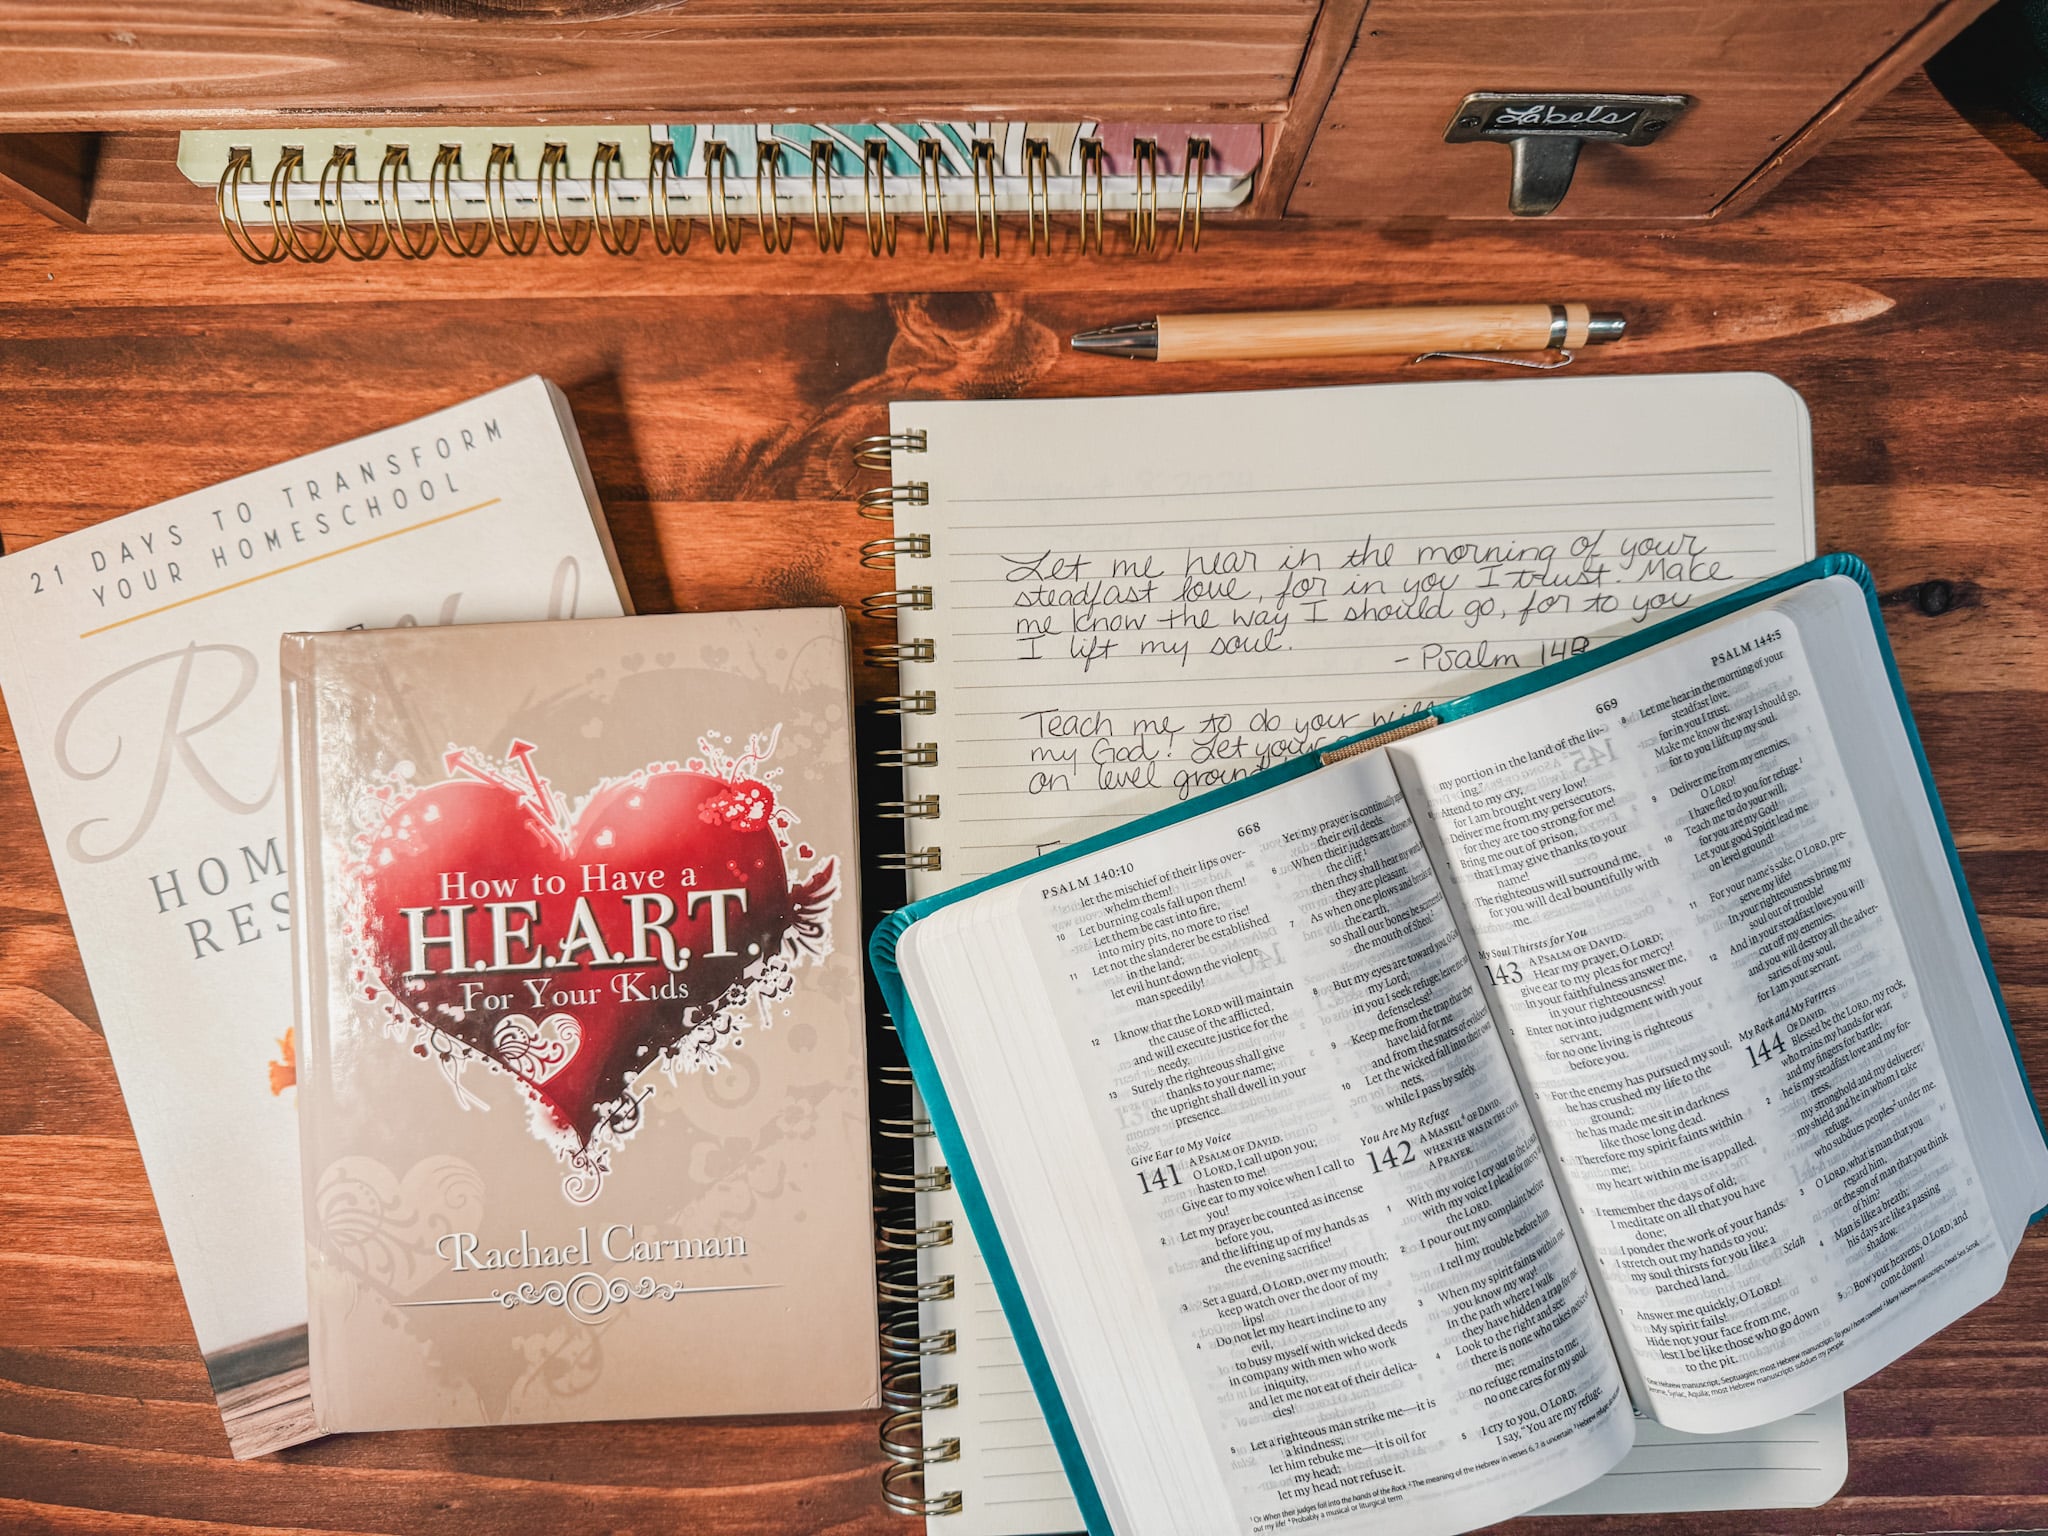 Labels
21 DAYS TO TRANSFORM
YOUR HOMESCHOOL
HOM
RES
How to Have a
H.E.A.R.T.
For Your Kids
Rachael Carman
Let me hear in the morning of your
steadfast love, for in you I trust. Make
me know the way I should go, for to you
I lift my soul.
- Psalm
Teach me to do your will
my God! Let your
on level ground
PSALM 140:10
668
let the mischief of their lips over-
whelm them!
10 Let burning coals fall upon them!
Let them be cast into fire,
into miry pits, no more to rise!
11 Let not the slanderer be established
in the land;
let evil hunt down the violent
man speedily!
12 I know that the LORD will maintain
the cause of the afflicted,
and will execute justice for the
needy.
13 Surely the righteous shall give
thanks to your name;
the upright shall dwell in your
presence.
Give Ear to My Voice
141 A PSALM OF DAVID.
O LORD, I call upon you;
hasten to me!
Give ear to my voice when I call to
you!
2 Let my prayer be counted as incense
before you,
and the lifting up of my hands as
the evening sacrifice!
3 Set a guard, O LORD, over my mouth;
keep watch over the door of my
lips!
4 Do not let my heart incline to any
evil,
to busy myself with wicked deeds
in company with men who work
iniquity,
and let me not eat of their delica-
cies!
5 Let a righteous man strike me—it is
a kindness;
let him rebuke me—it is oil for
my head;
let my head not refuse it.
Yet my prayer is continually
their evil deeds.
6 When their judges are
the cliff,
then they shall hear my
they are pleasant.
7 As when one plows and breaks
the earth,
so shall our bones be scattered
the mouth of Sheol.
8 But my eyes are toward you, O
my Lord;
in you I seek refuge; leave me
defenseless!
9 Keep me from the trap that they
have laid for me
and from the snares of evildoers
10 Let the wicked fall into their own
nets,
while I pass by safely.
You Are My Refuge
142 A MASKIL OF DAVID,
WHEN HE WAS IN THE CAVE.
A PRAYER.
1 With my voice I cry out to the
with my voice I plead for mercy
the LORD.
2 I pour out my complaint before
him;
I tell my trouble before him.
3 When my spirit faints within me,
you know my way!
In the path where I walk
they have hidden a trap for me.
4 Look to the right and see:
there is none who takes notice
me;
no refuge remains to me;
no one cares for my soul.
5 I cry to you, O LORD;
I say, "You are my refuge,
1 Or When their judges fall into the hands of the Rock 2 The meaning of the Hebrew in verses 6, 7 is uncertain 3 Hebrew
out my life! 4 Probably a musical or liturgical term
669
PSALM 144:5
my portion in the land of the liv-
ing."
Attend to my cry,
for I am brought very low!
Deliver me from my persecutors,
for they are too strong for me!
Bring me out of prison,
that I may give thanks to your
name!
The righteous will surround me,
for you will deal bountifully with
me.
My Soul Thirsts for You
143 A PSALM OF DAVID.
Hear my prayer, O LORD;
give ear to my pleas for mercy!
In your faithfulness answer me,
in your righteousness!
2 Enter not into judgment with your
servant,
for no one living is righteous
before you.
For the enemy has pursued my soul;
he has crushed my life to the
ground;
he has made me sit in darkness
like those long dead.
Therefore my spirit faints within
me;
my heart within me is appalled.
I remember the days of old;
I meditate on all that you have
done;
I ponder the work of your hands.
I stretch out my hands to you;
my soul thirsts for you like a
parched land. Selah
Answer me quickly, O LORD!
My spirit fails!
Hide not your face from me,
lest I be like those who go down
to the pit.
8 Let me hear in the morning of your
steadfast love,
for in you I trust.
Make me know the way I should go,
for to you I lift up my soul.
9 Deliver me from my enemies,
O LORD!
I have fled to you for refuge.
10 Teach me to do your will,
for you are my God!
Let your good Spirit lead me
on level ground!
11 For your name's sake, O LORD, pre-
serve my life!
In your righteousness bring my
soul out of trouble!
12 And in your steadfast love you will
cut off my enemies,
and you will destroy all the adver-
saries of my soul,
for I am your servant.
My Rock and My Fortress
144 OF DAVID.
Blessed be the LORD, my rock,
who trains my hands for war,
and my fingers for battle;
2 he is my steadfast love and my for-
tress,
my stronghold and my deliverer,
my shield and he in whom I take
refuge,
who subdues peoples under me.
3 O LORD, what is man that you
regard him,
or the son of man that you think
of him?
4 Man is like a breath;
his days are like a passing
shadow.
5 Bow your heavens, O LORD, and
come down!
Hebrew manuscript, Septuagint; most Hebrew manuscripts To you I have covered 2 Many Hebrew manuscripts, Dead Sea Scroll,
Jerome, Syriac, Aquila; most Hebrew manuscripts subdues my people